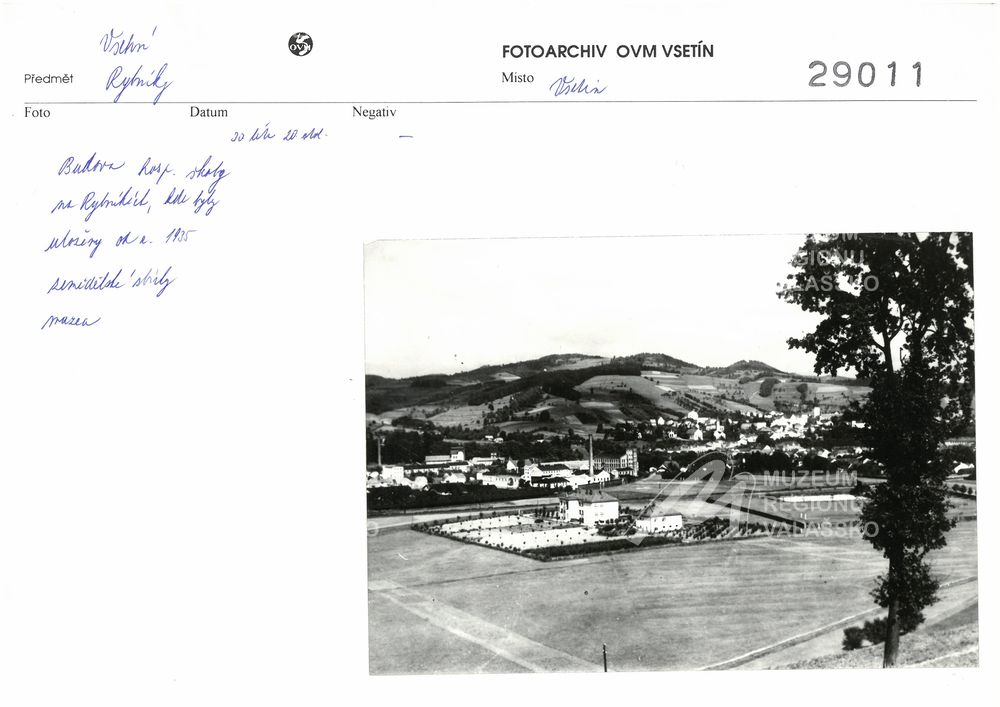 Vsetín
OVM
FOTOARCHIV OVM VSETÍN
Předmět Rybníky
Místo Vsetín
29011
Foto Datum Negativ
30 léta 20 stol. —
Budova hosp. školy
na Rybníkách, kde byly
uloženy od r. 1935
zemědělské sbírky
muzea
MUZEUM
REGIONU
VALAŠSKO
MUZEUM
REGIONU
VALAŠSKO